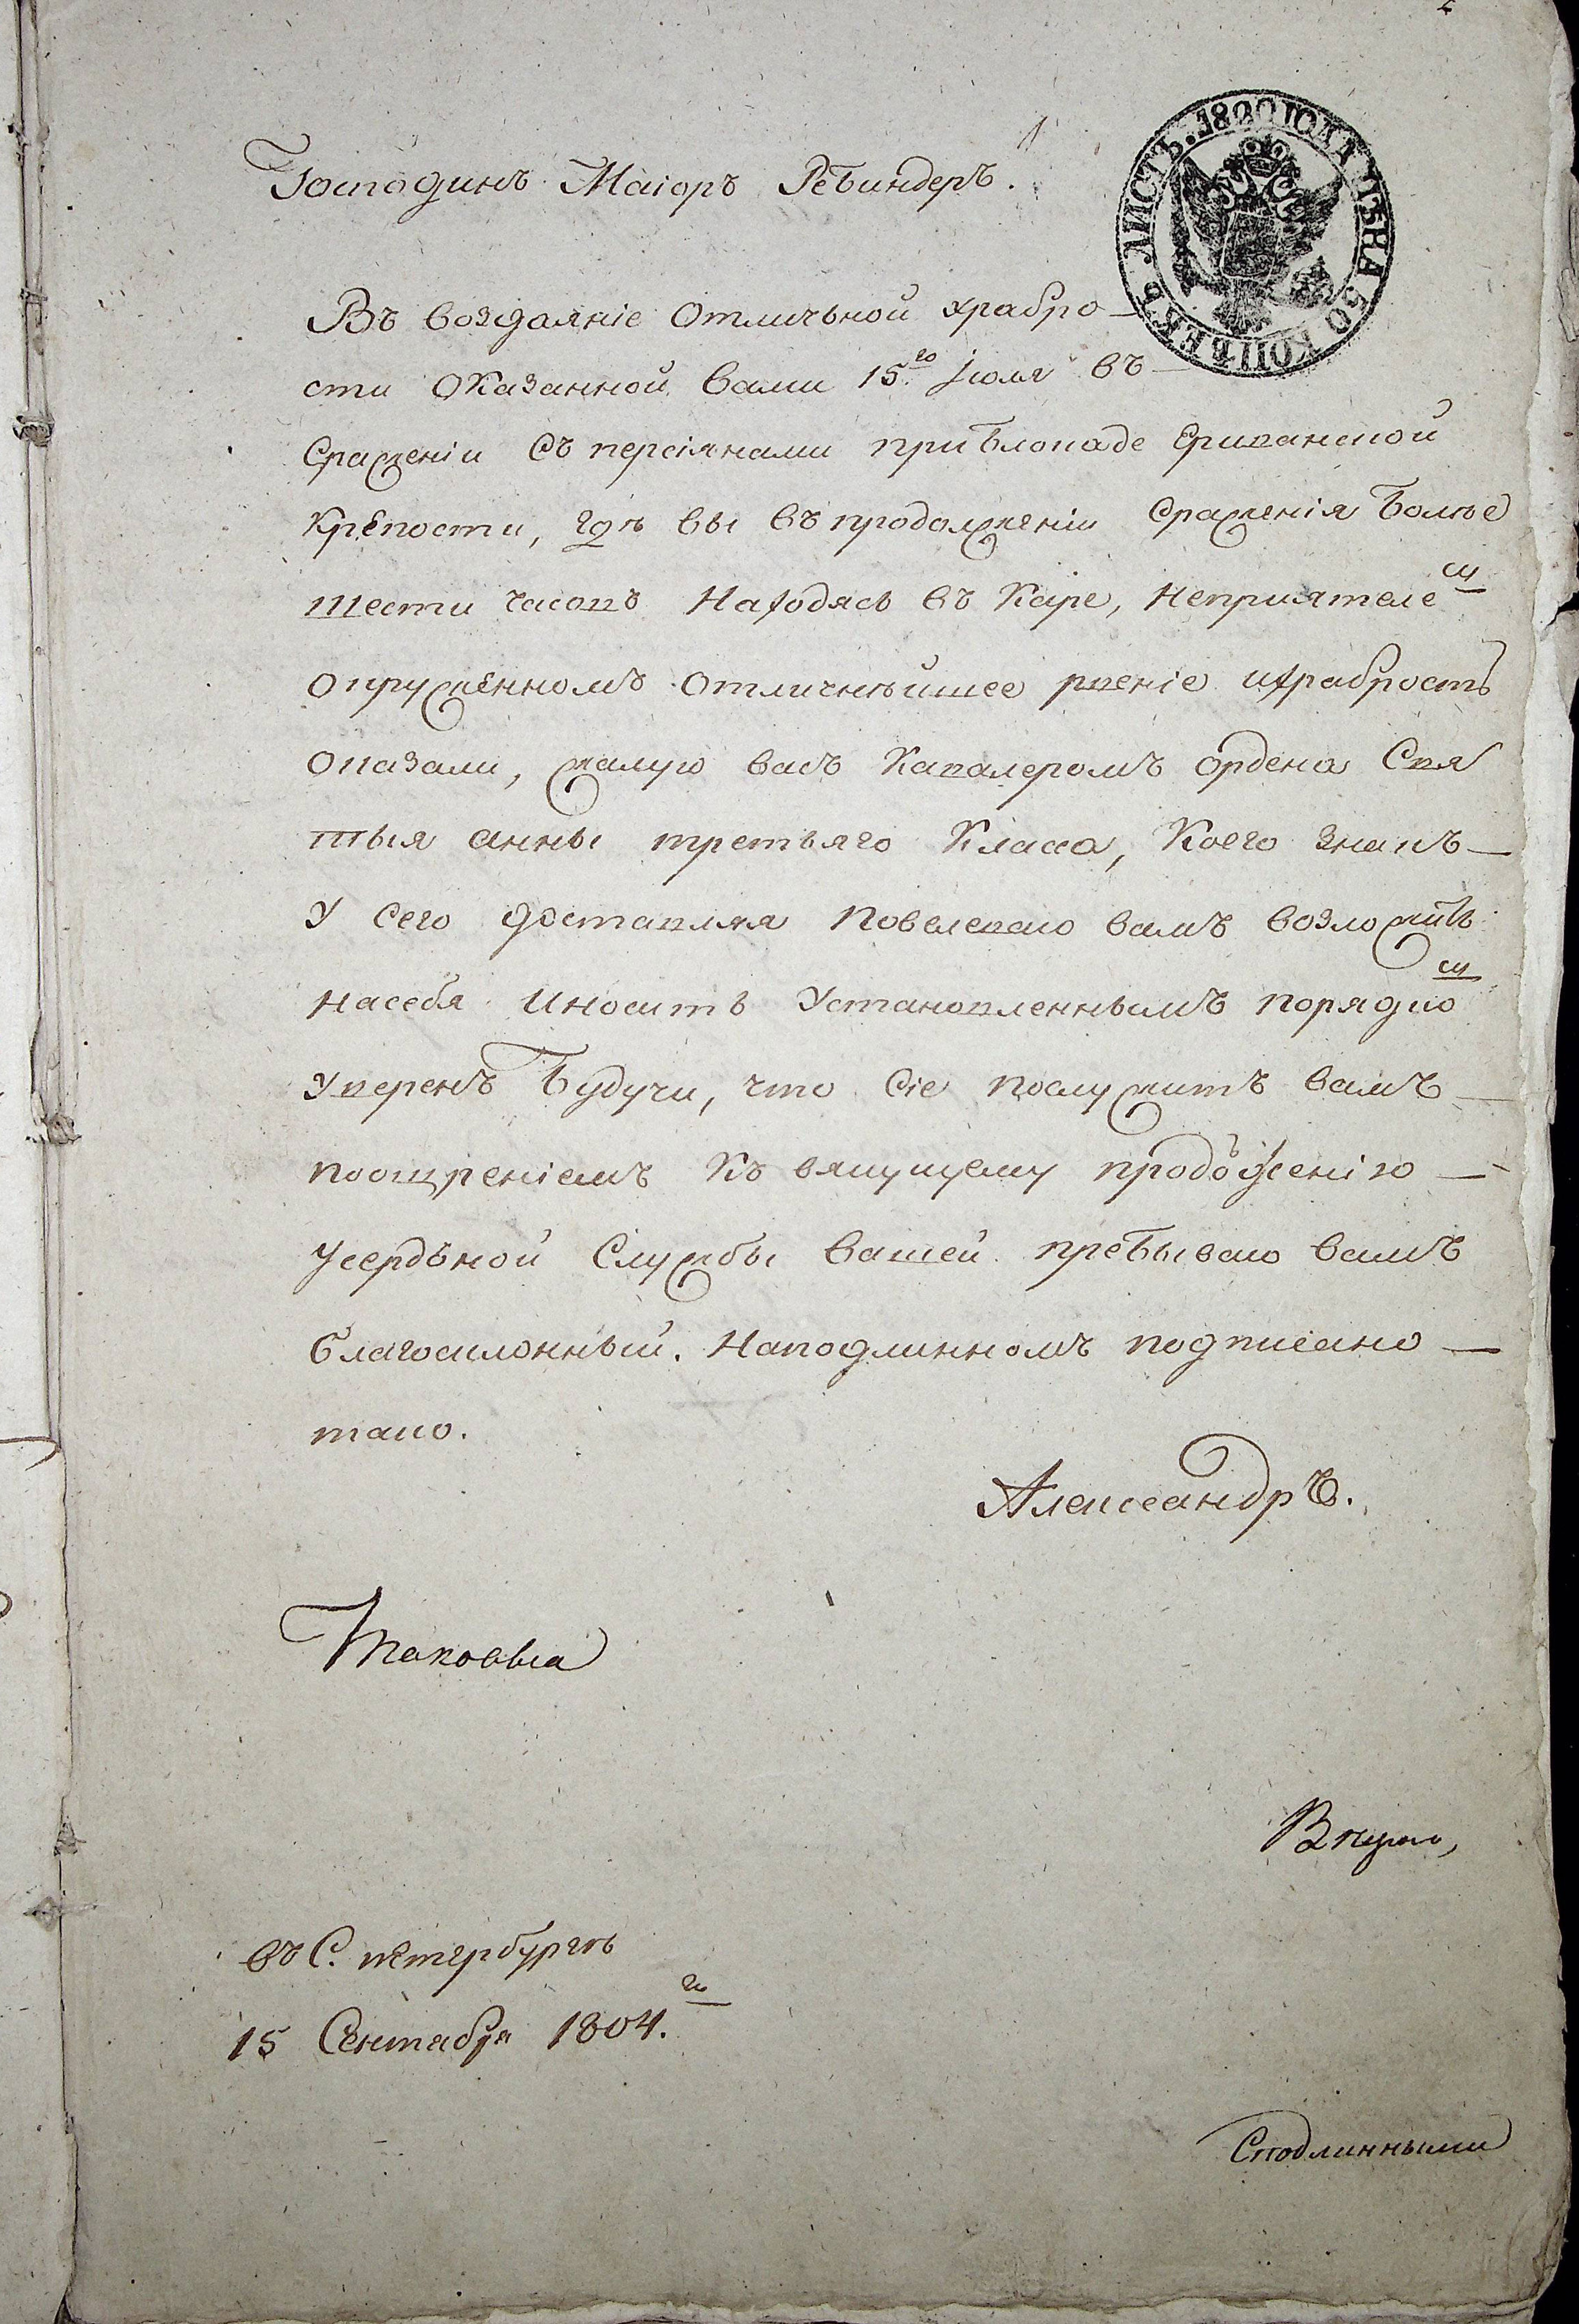 1
ЛИСТЪ. 1820 ГОДА ЦѢНА 50 КОПѢЕКЪ
Господинъ Маіоръ Ребиндеръ.
Въ воздаяніе Отличьной храбро-
сти Оказанной вами 15го Іюля въ
Сраженіи Съ персіянами при блокаде Ериванской
Крепости, гдѣ вы въ продолженіи Сраженія болѣе
шести часовъ Находясь въ Каре, Непріятелем
окруженномъ Отличнѣйшее рвеніе ихрабрость
оказали, жалую васъ Кавалеромъ ордена Свя
тыя анны третьяго Класса, Коего знакъ
У Сего доставляя Повелеваю вамъ возложить
насебя Иносить Установленнымъ порядком
Уверенъ будучи, что Сіе послужитъ вамъ
поощреніемъ Къ вящущему продолженію
Усердьной Службы вашей. пребываю вамъ
благосклонный. Наподлинномъ подписано
тако.
Александръ.
Таковыя
въ С. петербургѣ
15 Сентября 1804.го
Сподлинными